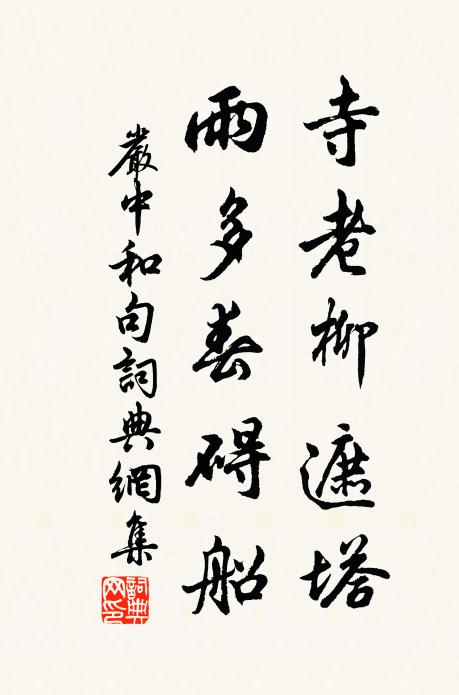 寺老柳遮塔
雨多春碍船
嚴中和句詞典網集
詞典网印